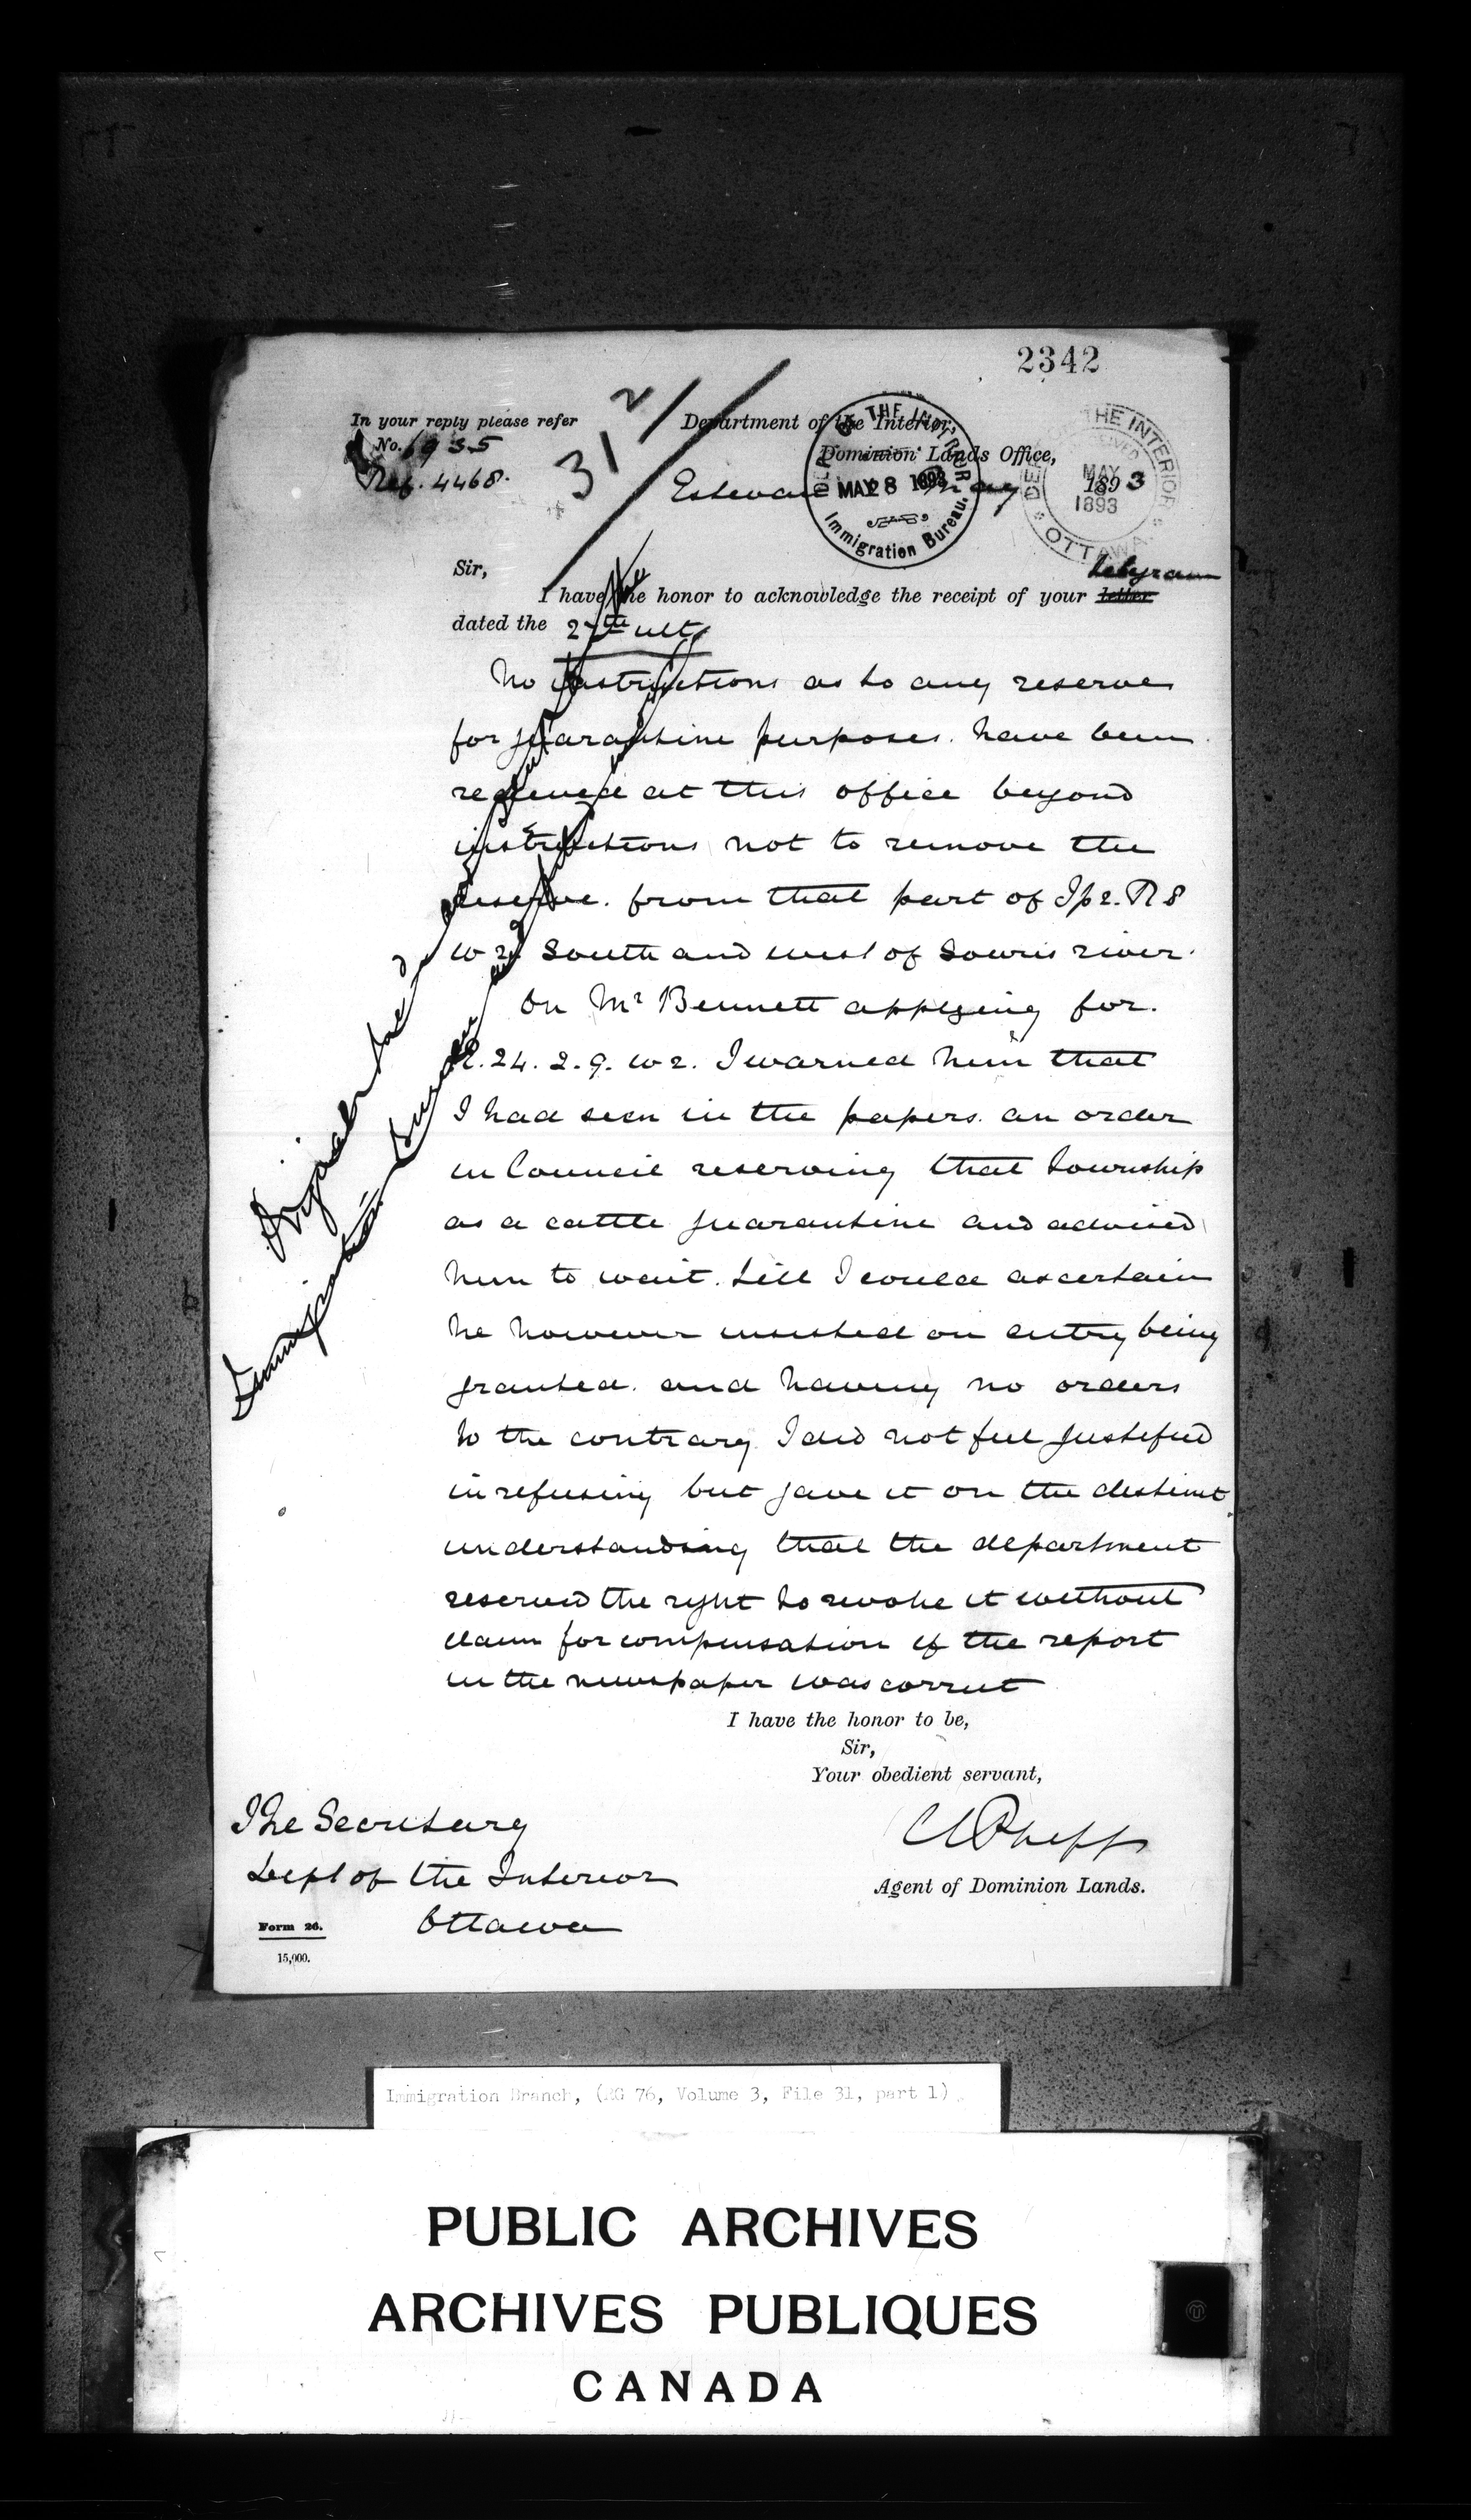 2342
In your reply please refer
No. 6935
Ref. 4468.
31
2
Department of the Interior,
Dominion Lands Office,
Estevan May 1893
DEPT OF THE INTERIOR.
MAY 8 1893
Immigration Bureau.
THE INTERIOR
RECEIVED
MAY
1893
OTTAWA
Sir,
telegram
I have the honor to acknowledge the receipt of your letter
dated the ult
No instructions as to any reserve
for quarantine purposes. have been
received at this office beyond
instructions not to remove the
reserve. from that part of Tp 2. R 8
W 2 South and west of Souris river.
On Mr Bennett applying for.
24. 2. 9. W 2. I warned him that
I had seen in the papers. an order
in Council reserving that Township
as a cattle quarantine and advised
him to wait. till I could ascertain
he however insisted on entry being
granted. and having no orders
to the contrary I did not feel justified
in refusing but gave it on the distinct
understanding that the department
reserved the right to revoke it without
claim for compensation if the report
in the newspaper was correct
I have the honor to be,
Sir,
Your obedient servant,
Agent of Dominion Lands.
The Secretary
Dept of the Interior
Ottawa
Form 26.
15,000.
Immigration Branch, (RG 76, Volume 3, File 31, part 1)
PUBLIC ARCHIVES
ARCHIVES PUBLIQUES
CANADA